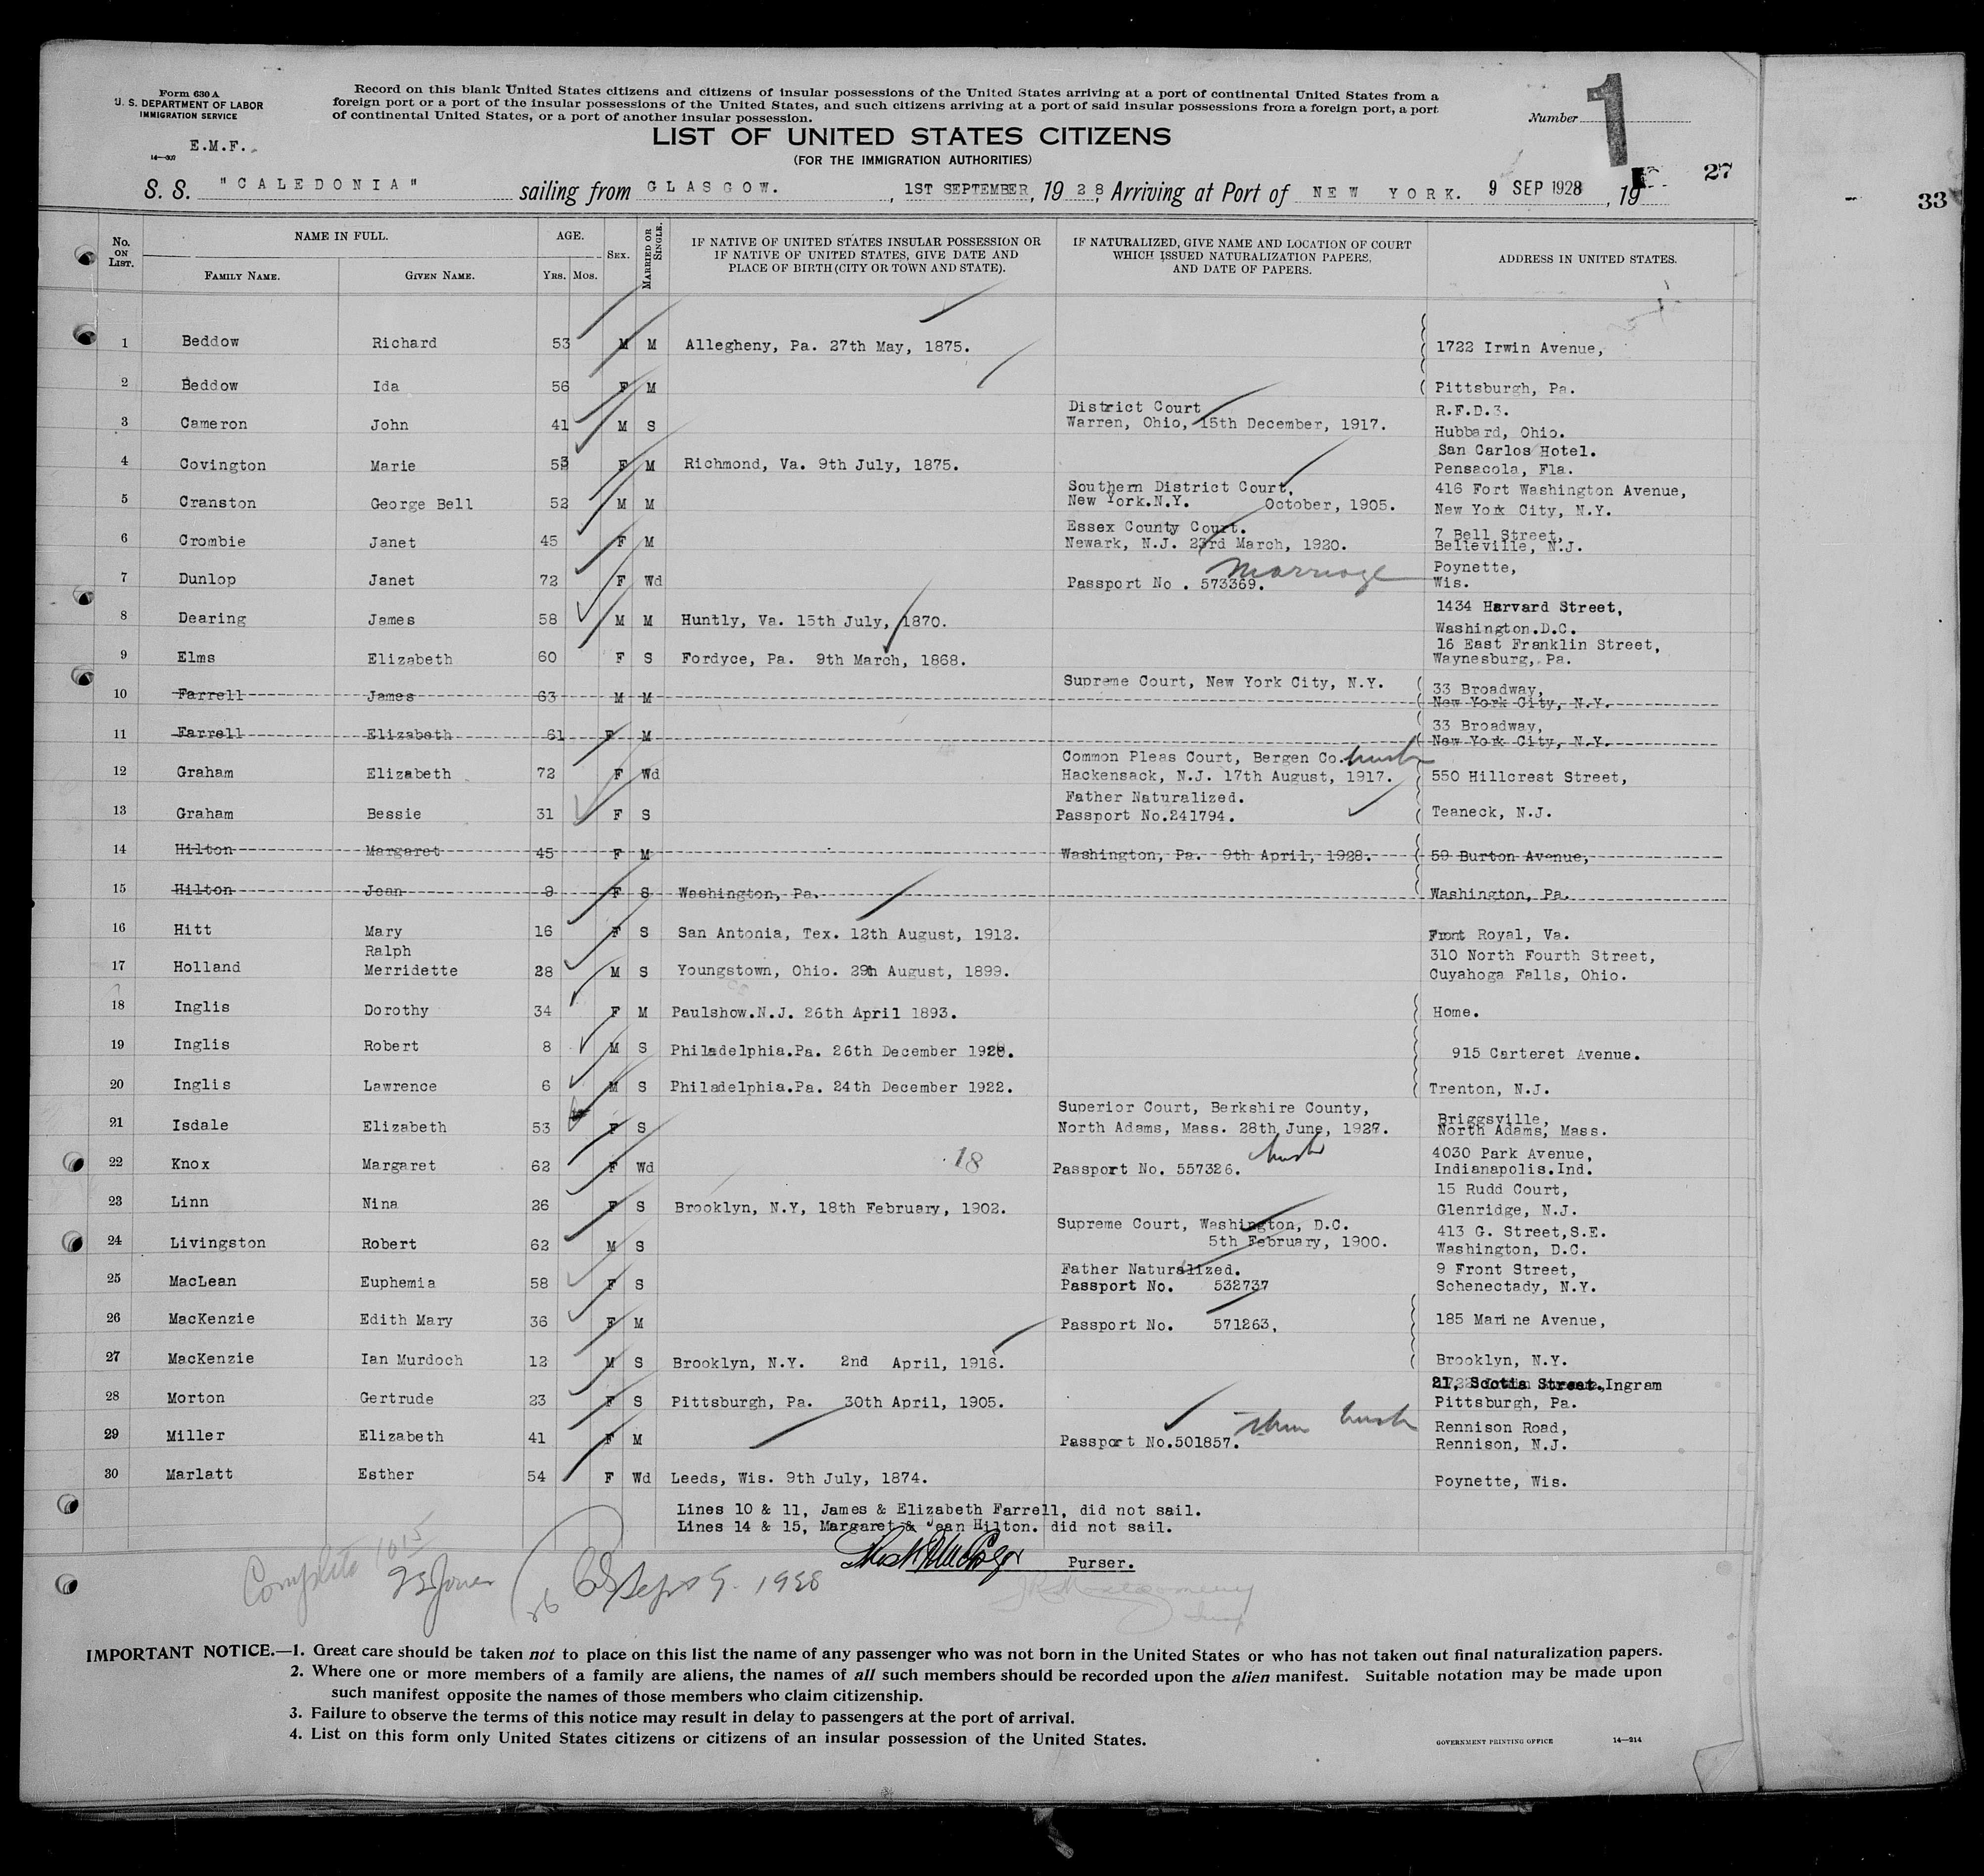 Form 630 A
U. S. DEPARTMENT OF LABOR
IMMIGRATION SERVICE
E.M.F.
14—307
Record on this blank United States citizens and citizens of insular possessions of the United States arriving at a port of continental United States from a
foreign port or a port of the insular possessions of the United States, and such citizens arriving at a port of said insular possessions from a foreign port, a port
of continental United States, or a port of another insular possession.
Number 1
LIST OF UNITED STATES CITIZENS
(FOR THE IMMIGRATION AUTHORITIES)
27
33
S. S. "CALEDONIA" sailing from GLASGOW. , 1ST SEPTEMBER, 1928, Arriving at Port of NEW YORK. 9 SEP 1928 , 19
No. ON LIST. NAME IN FULL. AGE. SEX. MARRIED OR SINGLE. IF NATIVE OF UNITED STATES INSULAR POSSESSION OR IF NATIVE OF UNITED STATES, GIVE DATE AND PLACE OF BIRTH (CITY OR TOWN AND STATE). IF NATURALIZED, GIVE NAME AND LOCATION OF COURT WHICH ISSUED NATURALIZATION PAPERS, AND DATE OF PAPERS. ADDRESS IN UNITED STATES.
FAMILY NAME. GIVEN NAME. YRS. MOS.
1 Beddow Richard 53 M M Allegheny, Pa. 27th May, 1875. 1722 Irwin Avenue,
2 Beddow Ida 56 F M Pittsburgh, Pa.
District Court R.F.D.3.
3 Cameron John 41 M S Warren, Ohio, 15th December, 1917. Hubbard, Ohio.
San Carlos Hotel.
4 Covington Marie 53 F M Richmond, Va. 9th July, 1875. Pensacola, Fla.
Southern District Court, 416 Fort Washington Avenue,
5 Cranston George Bell 52 M M New York.N.Y. October, 1905. New York City, N.Y.
Essex County Court. 7 Bell Street,
6 Crombie Janet 45 F M Newark, N.J. 23rd March, 1920. Belleville, N.J.
marriage Poynette,
7 Dunlop Janet 72 F Wd Passport No . 573369. Wis.
1434 Harvard Street,
8 Dearing James 58 M M Huntly, Va. 15th July, 1870. Washington.D.C.
16 East Franklin Street,
9 Elms Elizabeth 60 F S Fordyce, Pa. 9th March, 1868. Waynesburg, Pa.
Supreme Court, New York City, N.Y. 33 Broadway,
10 Farrell James 63 M M New York City, N.Y.
33 Broadway,
11 Farrell Elizabeth 61 F M New York City, N.Y.
Common Pleas Court, Bergen Co. husb
12 Graham Elizabeth 72 F Wd Hackensack, N.J. 17th August, 1917. 550 Hillcrest Street,
Father Naturalized.
13 Graham Bessie 31 F S Passport No.241794. Teaneck, N.J.
14 Hilton Margaret 45 F M Washington, Pa. 9th April, 1928. 59 Burton Avenue,
15 Hilton Jean 9 F S Washington, Pa. Washington, Pa.
16 Hitt Mary 16 F S San Antonia, Tex. 12th August, 1912. Front Royal, Va.
Ralph 310 North Fourth Street,
17 Holland Merridette 28 M S Youngstown, Ohio. 29h August, 1899. Cuyahoga Falls, Ohio.
18 Inglis Dorothy 34 F M Paulshow.N.J. 26th April 1893. Home.
19 Inglis Robert 8 M S Philadelphia.Pa. 26th December 1920. 915 Carteret Avenue.
20 Inglis Lawrence 6 M S Philadelphia.Pa. 24th December 1922. Trenton, N.J.
Superior Court, Berkshire County, Briggsville,
21 Isdale Elizabeth 53 F S North Adams, Mass. 28th June, 1927. North Adams, Mass.
18 husb 4030 Park Avenue,
22 Knox Margaret 62 F Wd Passport No. 557326. Indianapolis.Ind.
15 Rudd Court,
23 Linn Nina 26 F S Brooklyn, N.Y, 18th February, 1902. Glenridge, N.J.
Supreme Court, Washington, D.C. 413 G. Street,S.E.
24 Livingston Robert 62 M S 5th February, 1900. Washington, D.C.
Father Naturalized. 9 Front Street,
25 MacLean Euphemia 58 F S Passport No. 532737 Schenectady, N.Y.
26 MacKenzie Edith Mary 36 F M Passport No. 571263, 185 Marine Avenue,
27 MacKenzie Ian Murdoch 12 M S Brooklyn, N.Y. 2nd April, 1916. Brooklyn, N.Y.
21, Scotia Street.Ingram
28 Morton Gertrude 23 F S Pittsburgh, Pa. 30th April, 1905. Pittsburgh, Pa.
husb Rennison Road,
29 Miller Elizabeth 41 F M Passport No.501857. Rennison, N.J.
30 Marlatt Esther 54 F Wd Leeds, Wis. 9th July, 1874. Poynette, Wis.
Lines 10 & 11, James & Elizabeth Farrell, did not sail.
Lines 14 & 15, Margaret & Jean Hilton. did not sail.
Purser.
Complete 1015
Sept 9. 1928
26
IMPORTANT NOTICE.—1. Great care should be taken not to place on this list the name of any passenger who was not born in the United States or who has not taken out final naturalization papers.
2. Where one or more members of a family are aliens, the names of all such members should be recorded upon the alien manifest. Suitable notation may be made upon
such manifest opposite the names of those members who claim citizenship.
3. Failure to observe the terms of this notice may result in delay to passengers at the port of arrival.
4. List on this form only United States citizens or citizens of an insular possession of the United States.
GOVERNMENT PRINTING OFFICE 14—214